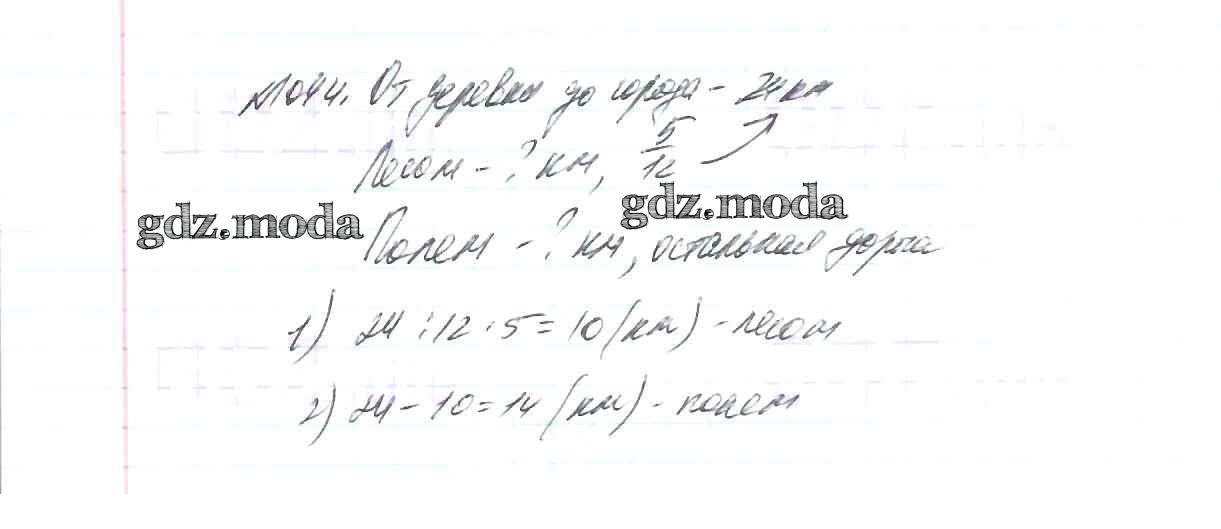 №1044. От деревни до города – 24 км
Лесом – ? км, 5/12
gdz.moda gdz.moda
Полем – ? км, остальная дорога
1) 24 : 12 · 5 = 10 (км) – лесом
2) 24 – 10 = 14 (км) – полем